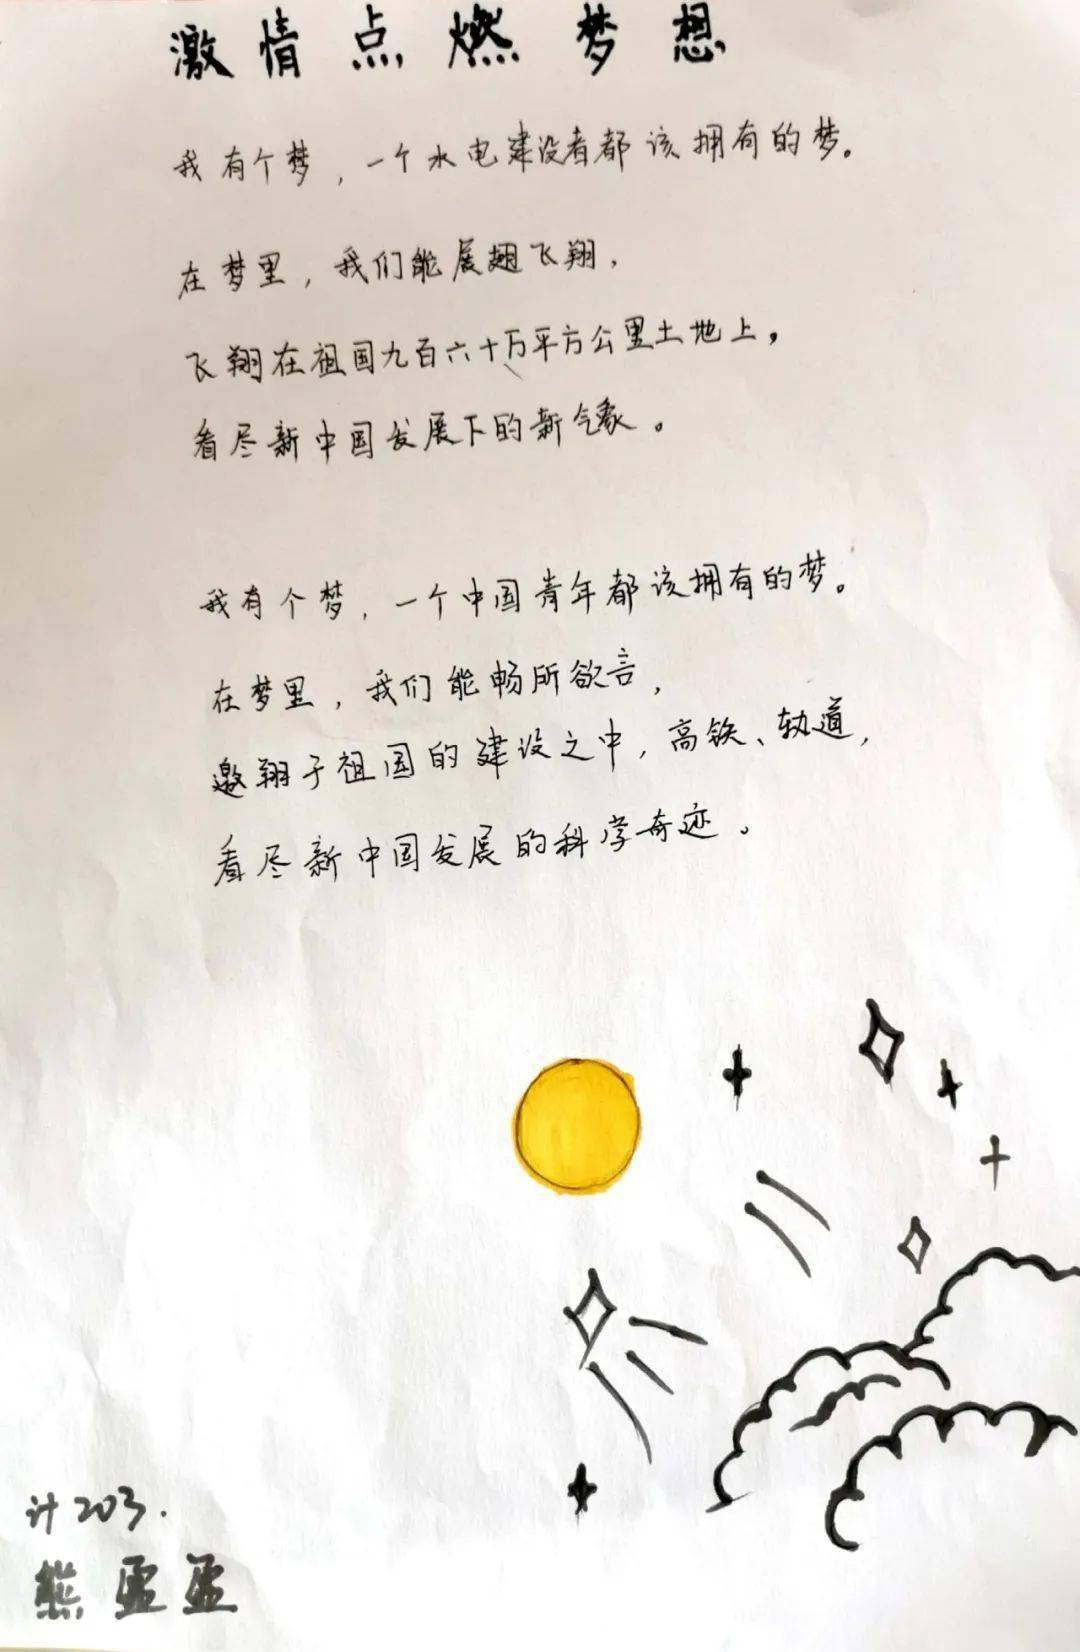 激情点燃梦想
我有个梦，一个水电建设者都该拥有的梦。
在梦里，我们能展翅飞翔，
飞翔在祖国九百六十万平方公里土地上，
看尽新中国发展下的新气象。
我有个梦，一个中国青年都该拥有的梦。
在梦里，我们能畅所欲言，
遨翔于祖国的建设之中，高铁、轨道，
看尽新中国发展的科学奇迹。
计203.
熊